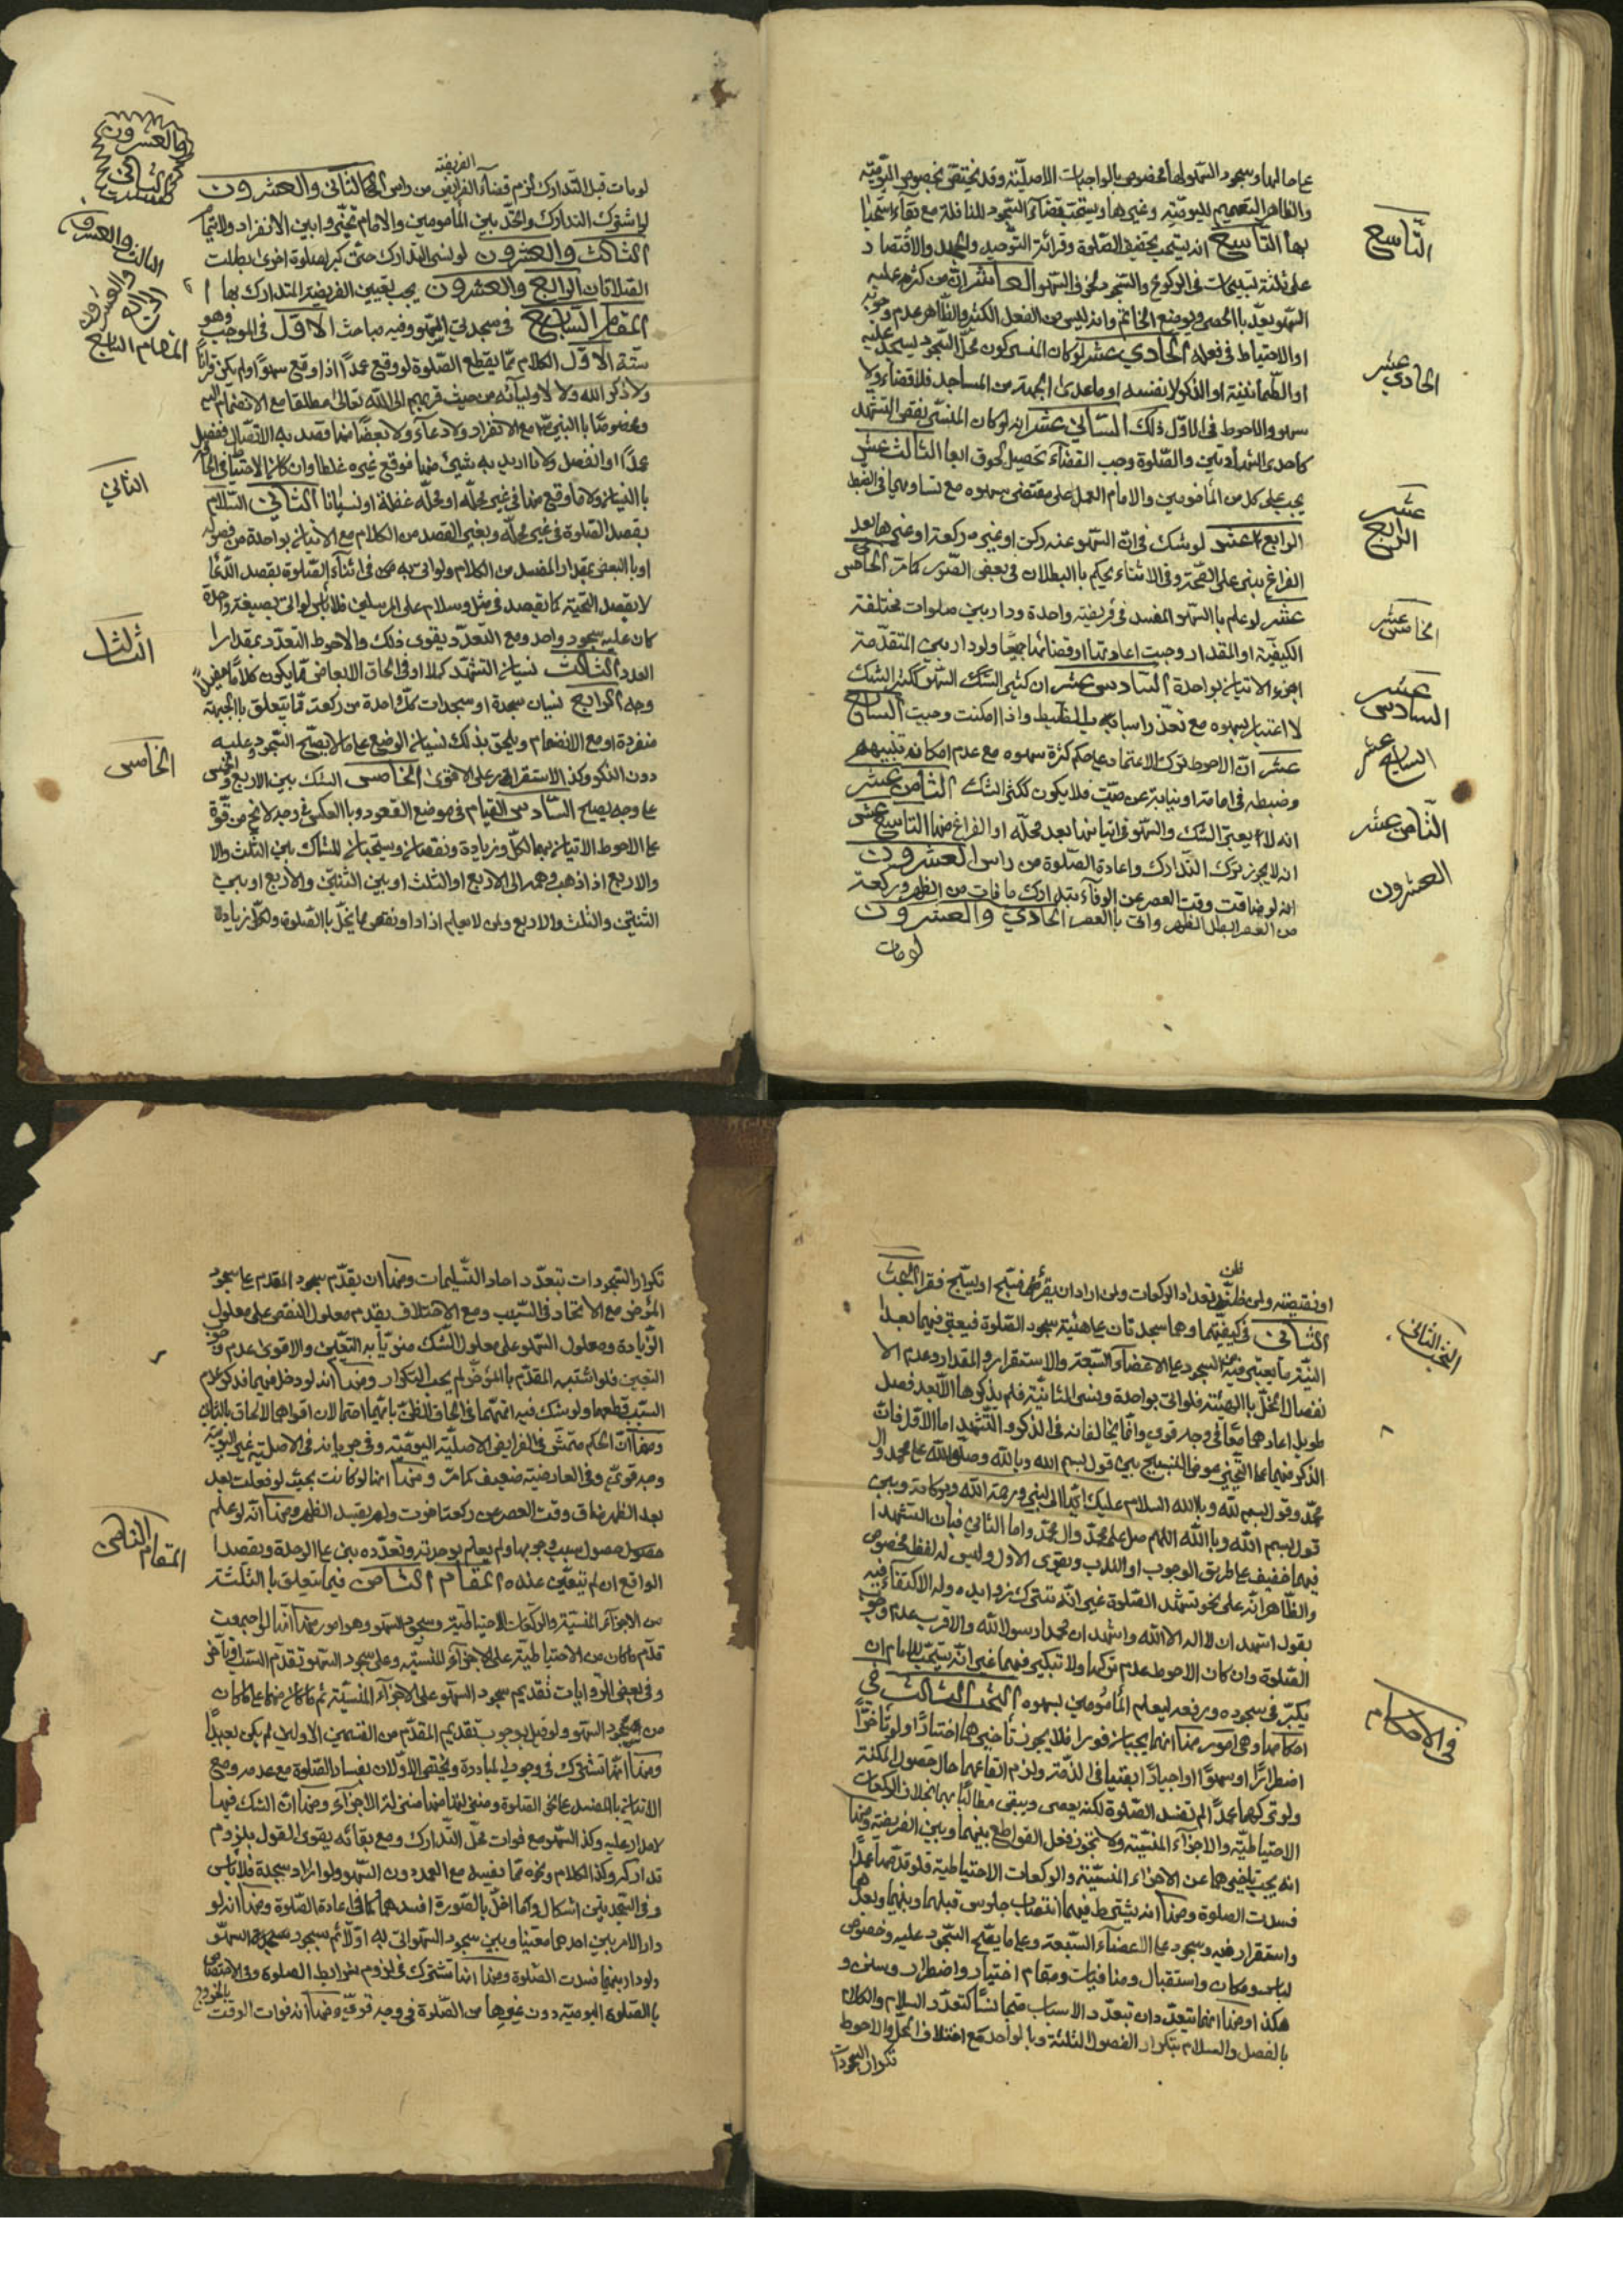 على حالهما وسجود السهو لها مخصوص بالواجبات الاصلية وقد يختص بخصوص اليومية
والظاهر التعميم لليومية وغيرها ويستحب قضاء السجود للنافلة مع بقاء استحبا
بها التاسع انه يستحب تخفيف الصلوة وقرائة التوحيد والجحد والاقتصاد
على ثلثة تسبيحات في الركوع والسجود مخوف السهو العاشر ان من كثر عليه
السهو يعد بالحصى وبوضع الخاتم وانه ليس من الفعل الكثير والظاهر عدم وجوبه
او الاحتياط في فعله الحادي عشر لو كان المنسي كون محل السجود يسجد عليه
او الطمأنينة او الذكر لا نفسه او ما عدى الجبهة من المساجد فلا قضاء ولا
سهو والاحوط في الاول ذلك الثاني عشر انه لو كان المنسي بعض التشهد
كاحدى الشهادتين والصلوة وجب القضاء تحصيل لحوق ابعا الثالث عشر
يجب على كل من المأمومين والامام العمل على مقتضى سهوه مع تساويهما في الضبط
الرابع عشر لو شك في ان السهو عنه ركن او غيره ركعة او غيرها بعد
الفراغ يبنى على الصحة وفي الاثناء يحكم بالبطلان في بعض الصور كما مر الخامس
عشر لو علم بالسهو المفسد في فريضة واحدة ودار بين صلوات مختلفة
الكيفية او المقدار وجبت اعادتها او قضائها جميعا ولو دار بين المتقدمة
اجزء الاتيان بواحدة السادس عشر ان كثير الشك السهو ككثير الشك
لا اعتبار بسهوه مع تعذر اسبابه بالضبط واذا امكنت وجبت السابع
عشر ان الاحوط ترك الاعتماد على حكم كثرة سهوه مع عدم امكانه تنبيهه
وضبطه في امامة او نيابة عن ميت فلا يكون ككثير الشك الثامن عشر
انه لا يعتبر الشك والسهو في اتيانها بعد محله او الفراغ منها التاسع عشر
انه لا يجوز ترك التدارك واعادة الصلوة من راس العشرون
انه لو ضاقت وقت العصر عن الوفاء بتدارك ما فات من الظهر وركعة
من العصر ابطل الظهر واتى بالعصر الحادي والعشرون
لو مات
التاسع
الحادي عشر
الرابع عشر
الخامس عشر
السادس عشر
السابع عشر
الثامن عشر
العشرون
الفريضة
لو مات قبل التدارك لزم قضاء الفرايض من راس الثاني والعشرون
لو اشترك التدارك واتحد بين المأمومين والامام تخيروا بين الانفراد والايتمام
الثالث والعشرون لو نسى التدارك حتى كبر لصلوة اخرى بطلت
الصلاتان الرابع والعشرون يجب تعيين الفريضة المتدارك بها
المقام السابع في سجدتي السهو وفيه مباحث الاول في الموجب وهو
ستة الاول الكلام مما يقطع الصلوة لو وقع عمدا اذا وقع سهوا ولم يكن قرانا
ولا ذكر الله ولا لاوليائه من حيث قربهم الى الله تعالى مطلقا مع الانضمام اليه
وخصوصا بالنبي مع الانفراد ولا دعاء ولا بعضا منها قصد به الاتصال ففصل
عمدا او انفصل ولا ما اريد به شيئ منها فوقع غيره غلطا وان كان الاحتياط في الحاق
بالنسيان ولا ما وقع منها في غير محله او محله غفلة او نسيانا الثاني السلام
بقصد الصلوة في غير محله وبغير القصد من الكلام مع الاتيان بواحدة من فصوله
او بالبعض بمقدار المفسد من الكلام ولو اتى به في اثناء الصلوة بقصد الدعا
لا بقصد التحية كما يقصد في مثل وسلام على المرسلين فلا باس لو اتى بصيغة واحدة
كان عليه سجود واحد ومع التعدد يقوى ذلك والاحوط التعدد بمقدار
العدد الثالث نسيان التشهد كملا وفي الحاق الابعاض مما يكون كلاما مفيدا
وجه الرابع نسيان سجدة او سجدات كل واحدة من ركعة مما يتعلق بالجبهة
منفردة او مع الانضمام ويلحق بذلك نسيان الوضع على ما لا يصح السجود عليه
دون الذكر وكذا الاستقرار على الاقوى الخامس الشك بين الاربع والخمس
على وجه يصلح السادس القيام في موضع القعود وبالعكس في وجه لا يخ من قوة
على الاحوط الاتيان بهما لكل زيادة ونقصان ويستحبان للشاك بين الثلث والا
والاربع اذا ذهب وهمه الى الاربع او الثلث او بين الثنتين والاربع او بين
الثنتين والثلث والاربع ولمن لا يعلم ازاد او نقص مما يخل بالصلوة ولكل زيادة
الثاني والعشرون
الثالث والعشرون
الرابع والعشرون
المقام السابع
الثاني
الثالث
الخامس
ظن
او نقيصة ولمن ظن تعداد الركعات ولمن اراد ان يقرء فسبح او يسبح فقرا البحث
الثاني في كيفيتهما وهما سجدتان على هيئة سجود الصلوة فيعتبر فيهما بعد
النية ما يعتبر فيه من السجود على الاعضاء السبعة والاستقرار والمقدار وعدم الا
نفصال المخل بالهيئة فلو اتى بواحدة ونسى الثانية فلم يذكرها الا بعد فصل
طويل اعادهما معا في وجه قوي وانما يخالفانه في الذكر والتشهد اما الاول فان
الذكر فيهما على التخيير عوض التسبيح بين قول بسم الله وبالله وصلى الله على محمد وال
محمد وقول بسم الله وبالله السلام عليك ايها النبي ورحمة الله وبركاته وبين
قول بسم الله وبالله اللهم صل على محمد وال محمد واما الثاني فبان التشهد
فيهما خفيف على طريق الوجوب او الندب ويقوى الاول وليس له لفظ مخصوص
والظاهر انه على نحو تشهد الصلوة غير انه تترك زوايده وله الاكتفاء فيه
بقول اشهد ان لا اله الا الله واشهد ان محمدا رسول الله والاقرب عدم وجوب
الصلوة وان كان الاحوط عدم تركها ولا تكبير فيهما غير انه يستحب للامام ان
يكبر في سجوده ورفعه ليعلم المأمومين بسهوه البحث الثالث في
احكامها وهي امور منها انهما يجبان فورا فلا يجوز تأخيرهما اختيارا ولو تأخرا
اضطرارا او سهوا او اجبارا بقيتا في الذمة ولزم ايقاعهما حال حصول المكنة
ولو تركهما عمدا لم تفسد الصلوة لكنه يعصى ويبقى مطالبا بهما بخلاف الركعات
الاحتياطية والاجزاء المنسية ولا يجوز فعل القواطع بينهما وبين الفريضة ومنها
انه يجب تاخيرهما عن الاجزاء المنسية والركعات الاحتياطية فلو قدمهما عمدا
فسدت الصلوة ومنها انه يشترط فيهما انتصاب جلوس قبلهما وبينهما وبعدهما
واستقرار فيه وسجود على الاعضاء السبعة وعلى ما يصح السجود عليه وخصوص
لباس ومكان واستقبال ومنافيات ومقام اختيار واضطرار وسنن و
هكذا ومنها انهما يتعددان بتعدد الاسباب متجانسا كتعدد السلام والكلام
بالفصل والسلام بتكرار الفصول الثلثة وبالواحد مع اختلاف المحل والاحوط
تكرار السجودات
البحث الثاني
في الاحكام
تكرار السجودات بتعدد احاد التسليمات ومنها ان يقدم سجود المقدم على سجود
المؤخر مع الاتحاد في السبب ومع الاختلاف يقدم معلول النقص على معلول
الزيادة ومعلول السهو على معلول الشك منويا به التعيين والاقوى عدم وجوب
التعيين فلو اشتبه المقدم بالمؤخر لم يجب التكرار ومنها انه لو دخل فيهما فذكر عدم
السبب قطعهما ولو شك فيه اتمهما في الحاق الظن بايهما احتمالان اقواهما الالحاق بالثاني
ومنها ان الحكم متمش في الفرايض الاصلية اليومية وفي جريانه في الاصلية غير اليومية
وجه قوي وفي العارضية ضعيف كما مر ومنها انها لو كانت بحيث لو فعلت بعد
بعد الظهر ضاق وقت العصر عن ركعة اخرت ولم يفسد الظهر ومنها انه لو علم
حصول سبب وجوبها ولم يعلم بوحدته وتعدده بنى على الوحدة ويقصد
الواقع ان لم يتعين عنده المقام الثامن فيما يتعلق بالثلثة
من الاجزاء المنسية والركعات الاحتياطية وسجود السهو وهو امور منها انها لو اجتمعت
قدم ما كان من الاحتياطية على الاجزاء المنسية وعلى سجود السهو تقدم السبب او تأخر
وفي بعض الروايات تقديم سجود السهو على الاجزاء المنسية ثم ما كان منها على ما كان
من سجود السهو ولو قيل بوجوب تقديم المقدم من القسمين الاولين لم يكن بعيدا
ومنها انها تشترك في وجوب المبادرة ويختص الاولان بفساد الصلوة مع عدمه ومع
الاتيان بالمفسد على نحو الصلوة ومنزلتها منها منزلة الاجزاء ومنها ان الشك فيها
لا مدار عليه وكذا السهو مع فوات محل التدارك ومع بقائه يقوى القول بلزوم
تداركه وكذا الكلام ونحوه مما يفسد مع العمد دون السهو ولو زاد سجدة فلا باس
وفي السجدتين اشكال وكلما اخل بالصورة افسدهما كما في اعادة الصلوة ومنها انه لو
دار الامر بين احدهما معينا وبين سجود السهو اتى به اولا ثم سجود السهو
ولو دار بينهما فسدت الصلوة ومنها انها تشترك في لزوم شرايط الصلوة وفي الاختصاص
بالصلوة اليومية دون غيرها من الصلوة في وجه قوي ومنها انه فوات الوقت
بالخروج
المقام الثامن